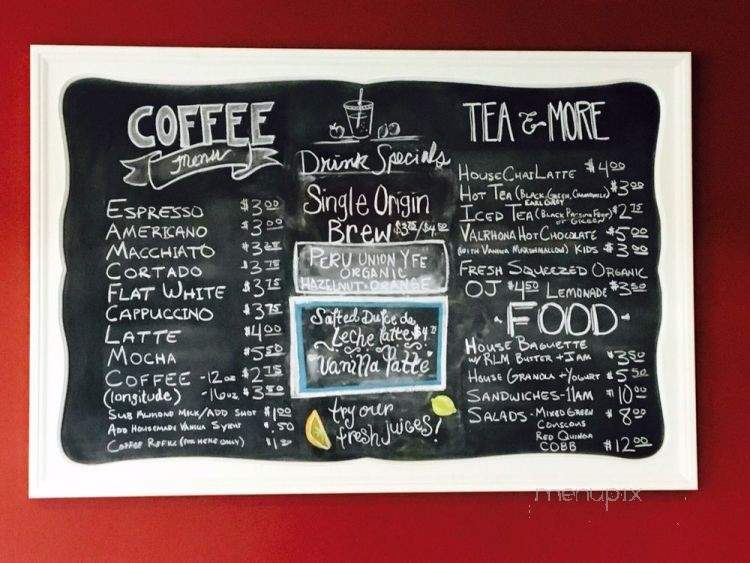 COFFEE
menu
ESPRESSO $3.00
AMERICANO $3.00
MACCHIATO $3.25
CORTADO $3.75
FLAT WHITE $3.75
CAPPUCCINO $3.75
LATTE $4.00
MOCHA $5.50
COFFEE -12oz $2.75
(longitude) -16oz $3.50
SUB ALMOND MILK/ADD SHOT $1.00
ADD HOUSEMADE VANILLA SYRUP $.50
COFFEE REFILL (FOR HERE ONLY)
Drink Specials
Single Origin
Brew $3.75/$4.50
PERU UNION YFE
ORGANIC
HAZELNUT-ORANGE
Salted Dulce de
Leche latte $4.75
Vanilla Latte
try our
fresh juices!
TEA & MORE
HOUSE CHAI LATTE $4.00
HOT TEA (BLACK, GREEN, CHAMOMILE) $3.00
EARL GREY
ICED TEA (BLACK PASSION FRUIT) $2.75
OR GREEN
VALRHONA HOT CHOCOLATE $5.00
(WITH VANILLA MARSHMALLOW) KIDS $3.00
FRESH SQUEEZED ORGANIC
OJ $4.50 LEMONADE $3.50
-FOOD-
HOUSE BAGUETTE
W/ RLM BUTTER + JAM $3.50
HOUSE GRANOLA + YOGURT $5.50
SANDWICHES-11AM $10.00
SALADS - MIXED GREEN $8.00
COUSCOUS
RED QUINOA
COBB $12.00
menupix